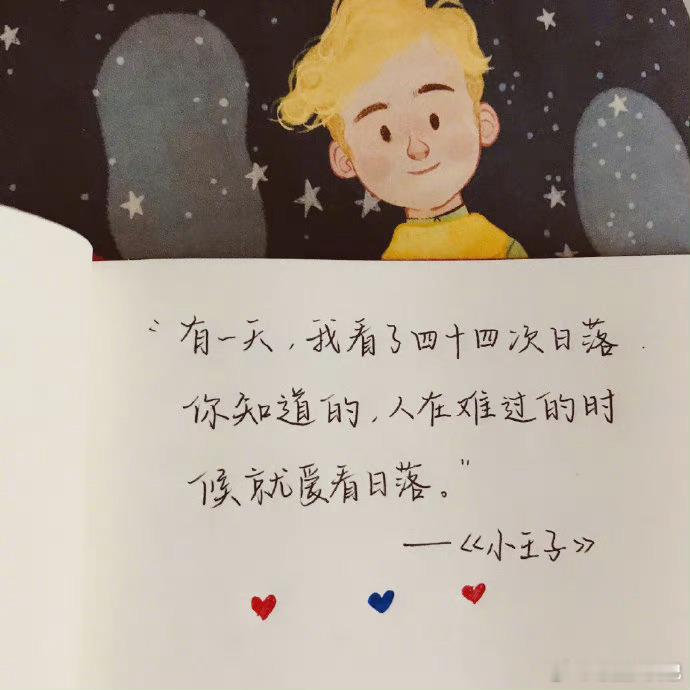 “有一天，我看了四十四次日落.
你知道的，人在难过的时
候就爱看日落。”
—《小王子》